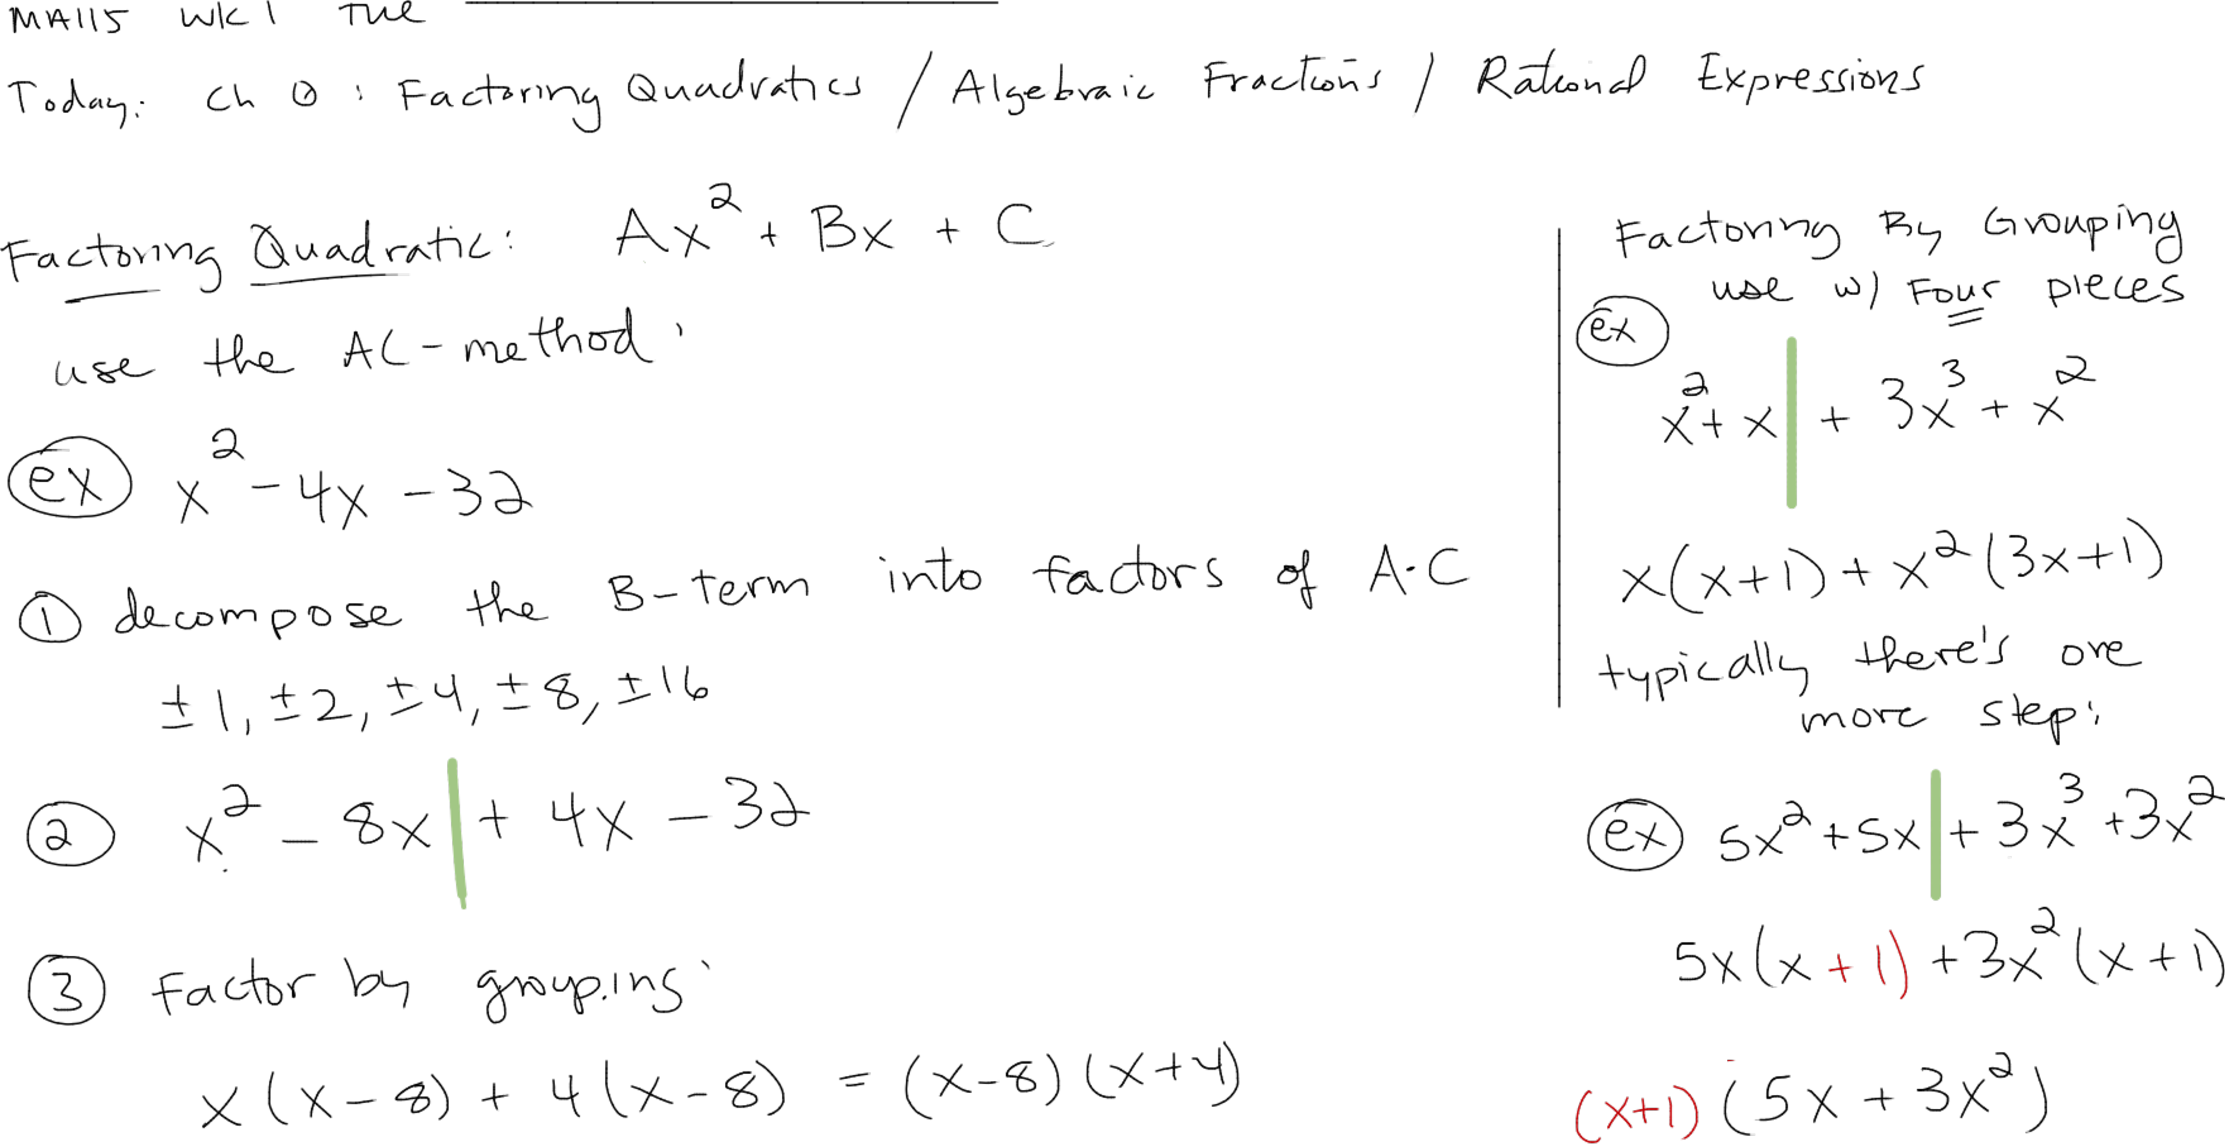 MA115 WK 1 Tue
Today: Ch 0: Factoring Quadratics / Algebraic Fractions / Rational Expressions
Factoring Quadratic: Ax² + Bx + C
use the AC-method:
ex x² - 4x - 32
① decompose the B-term into factors of A·C
±1, ±2, ±4, ±8, ±16
② x² - 8x | + 4x - 32
③ Factor by grouping:
x(x-8) + 4(x-8) = (x-8)(x+4)
Factoring By Grouping
use w/ Four pieces
ex
x² + x | + 3x³ + x²
x(x+1) + x²(3x+1)
typically there's one
more step:
ex 5x² + 5x | + 3x³ + 3x²
5x(x+1) + 3x²(x+1)
(x+1)(5x + 3x²)